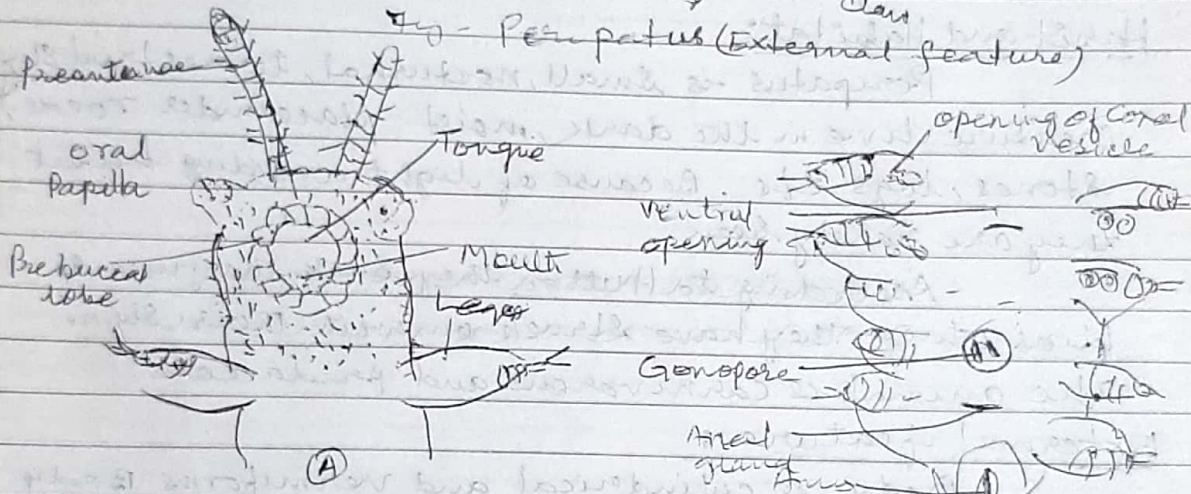 Class
Fig - Peripatus (External feature)
Preantennae
Oral
Papilla
Tongue
Prebuccal
lobe
Mouth
Legs
A
opening of Coxal
Vesicle
Ventral
opening
Gonopore
Anal
gland
Anus